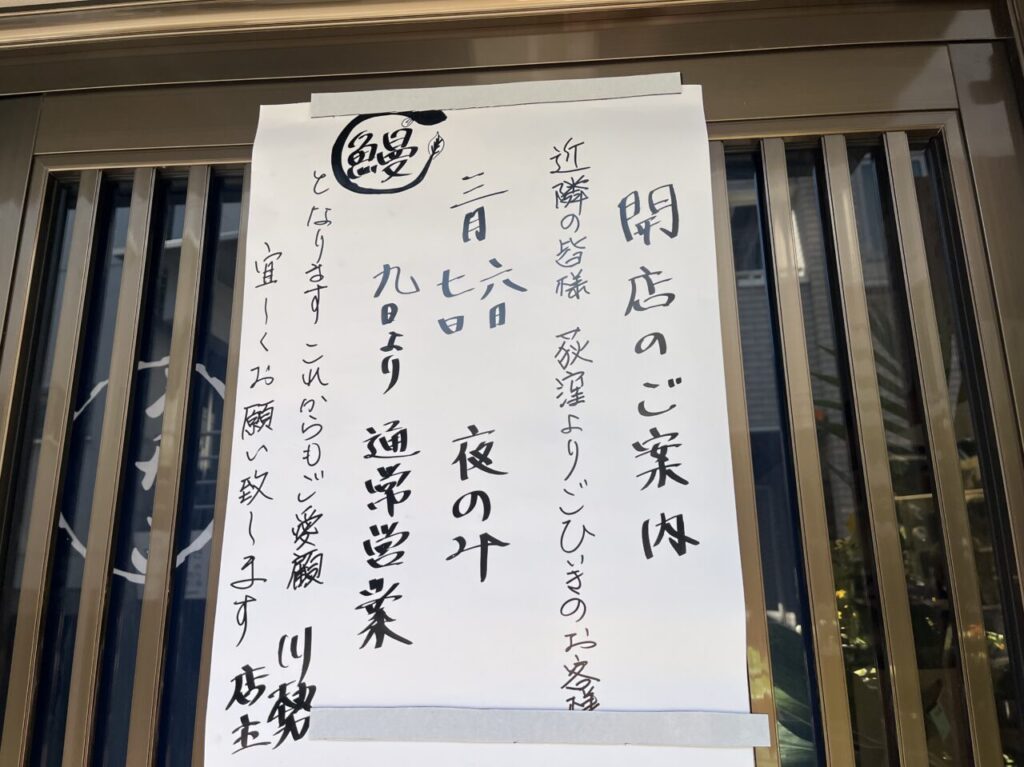 開店のご案内
近隣の皆様 荻窪よりごひいきのお客様
三月 六日
七日
夜のみ
九日より 通常営業
となります これからもご愛顧
宜しくお願い致します
川勢
店主
鰻